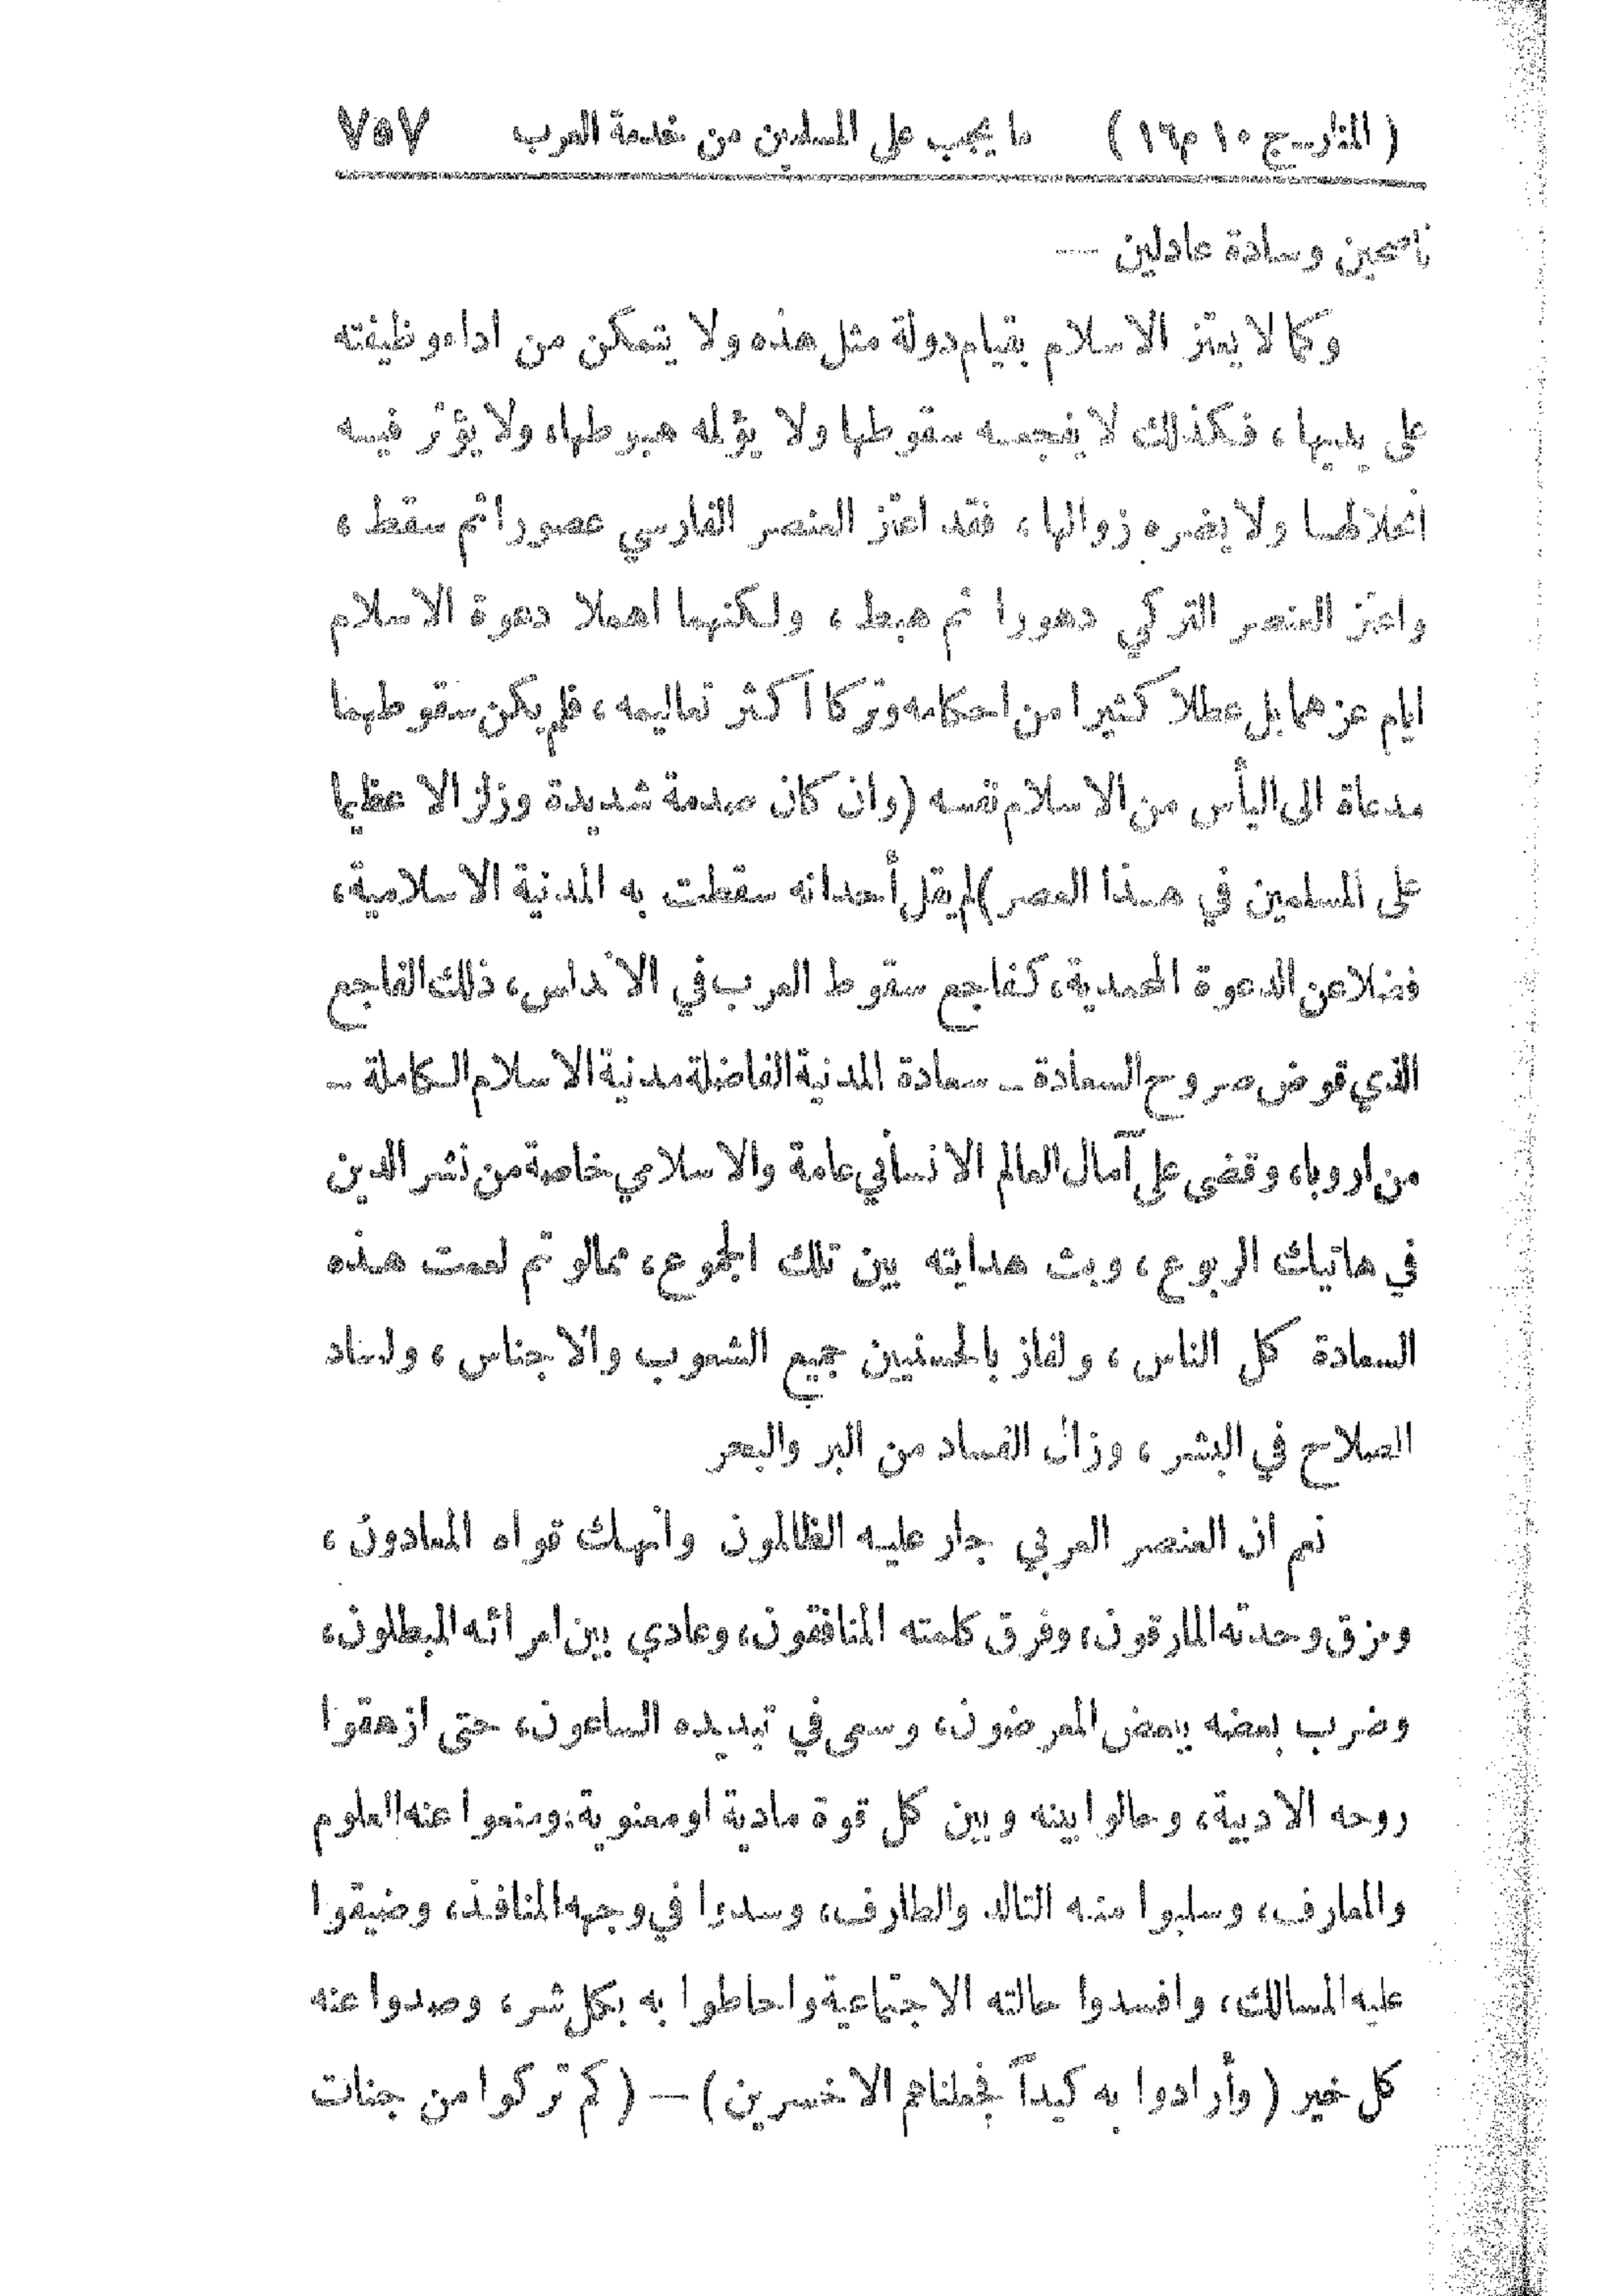 ( المنار ـ ج ١٠ م ١٦ ) ما يجب على المسلمين من خدمة العرب ٧٥٧
ناصحين وسادة عادلين —
وكما لا يعتز الاسلام بقيام دولة مثل هذه ولا يتمكن من اداء وظيفته
على يديها، فكذلك لا يفجعه سقوطها ولا يؤلمه هبوطها، ولا يؤثر فيه
انحلالها ولا يضره زوالها، فقد اعتز العنصر الفارسي عصورا ثم سقط،
واعتز العنصر التركي دهورا ثم هبط، ولكنهما اهملا دعوة الاسلام
ايام عزهما بل عطلا كثيرا من احكامه وتركا أكثر تعاليمه، فلم يكن سقوطهما
مدعاة الى اليأس من الاسلام نفسه (وان كان صدمة شديدة وزلزالا عظيما
على المسلمين في هذا العصر) لم يقل أحد انه سقطت به المدنية الاسلامية،
فضلا عن الدعوة المحمدية، كفاجع سقوط العرب في الاندلس، ذلك الفاجع
الذي قوض صروح السعادة ـ سعادة المدنية الفاضلة مدنية الاسلام الكاملة ـ
من اروبا، وقضى على آمال العالم الانساني عامة والاسلامي خاصة من نشر الدين
في هاتيك الربوع، وبث هدايته بين تلك الجموع، مما لو تم لعمت هذه
السعادة كل الناس، ولفاز بالحسنيين جميع الشعوب والاجناس، ولساد
الصلاح في البشر، وزال الفساد من البر والبحر
نعم ان العنصر العربي جار عليه الظالمون وانهك قواه المعادون،
ومزق وحدته المارقون، وفرق كلمته المنافقون، وعادي بين امرائه المبطلون،
وضرب بعضه ببعض المغرضون، وسعى في تبديده الساعون، حتى ازهقوا
روحه الادبية، وحالوا بينه وبين كل قوة مادية او معنوية، ومنعوا عنه العلوم
والمعارف، وسلبوا منه التالد والطارف، وسدوا في وجهه المنافذ، وضيقوا
عليه المسالك، وافسدوا حالته الاجتماعية واحاطوا به بكل شر، وصدوا عنه
كل خير ( وأرادوا به كيداً فجعلناهم الاخسرين ) — ( كم تركوا من جنات